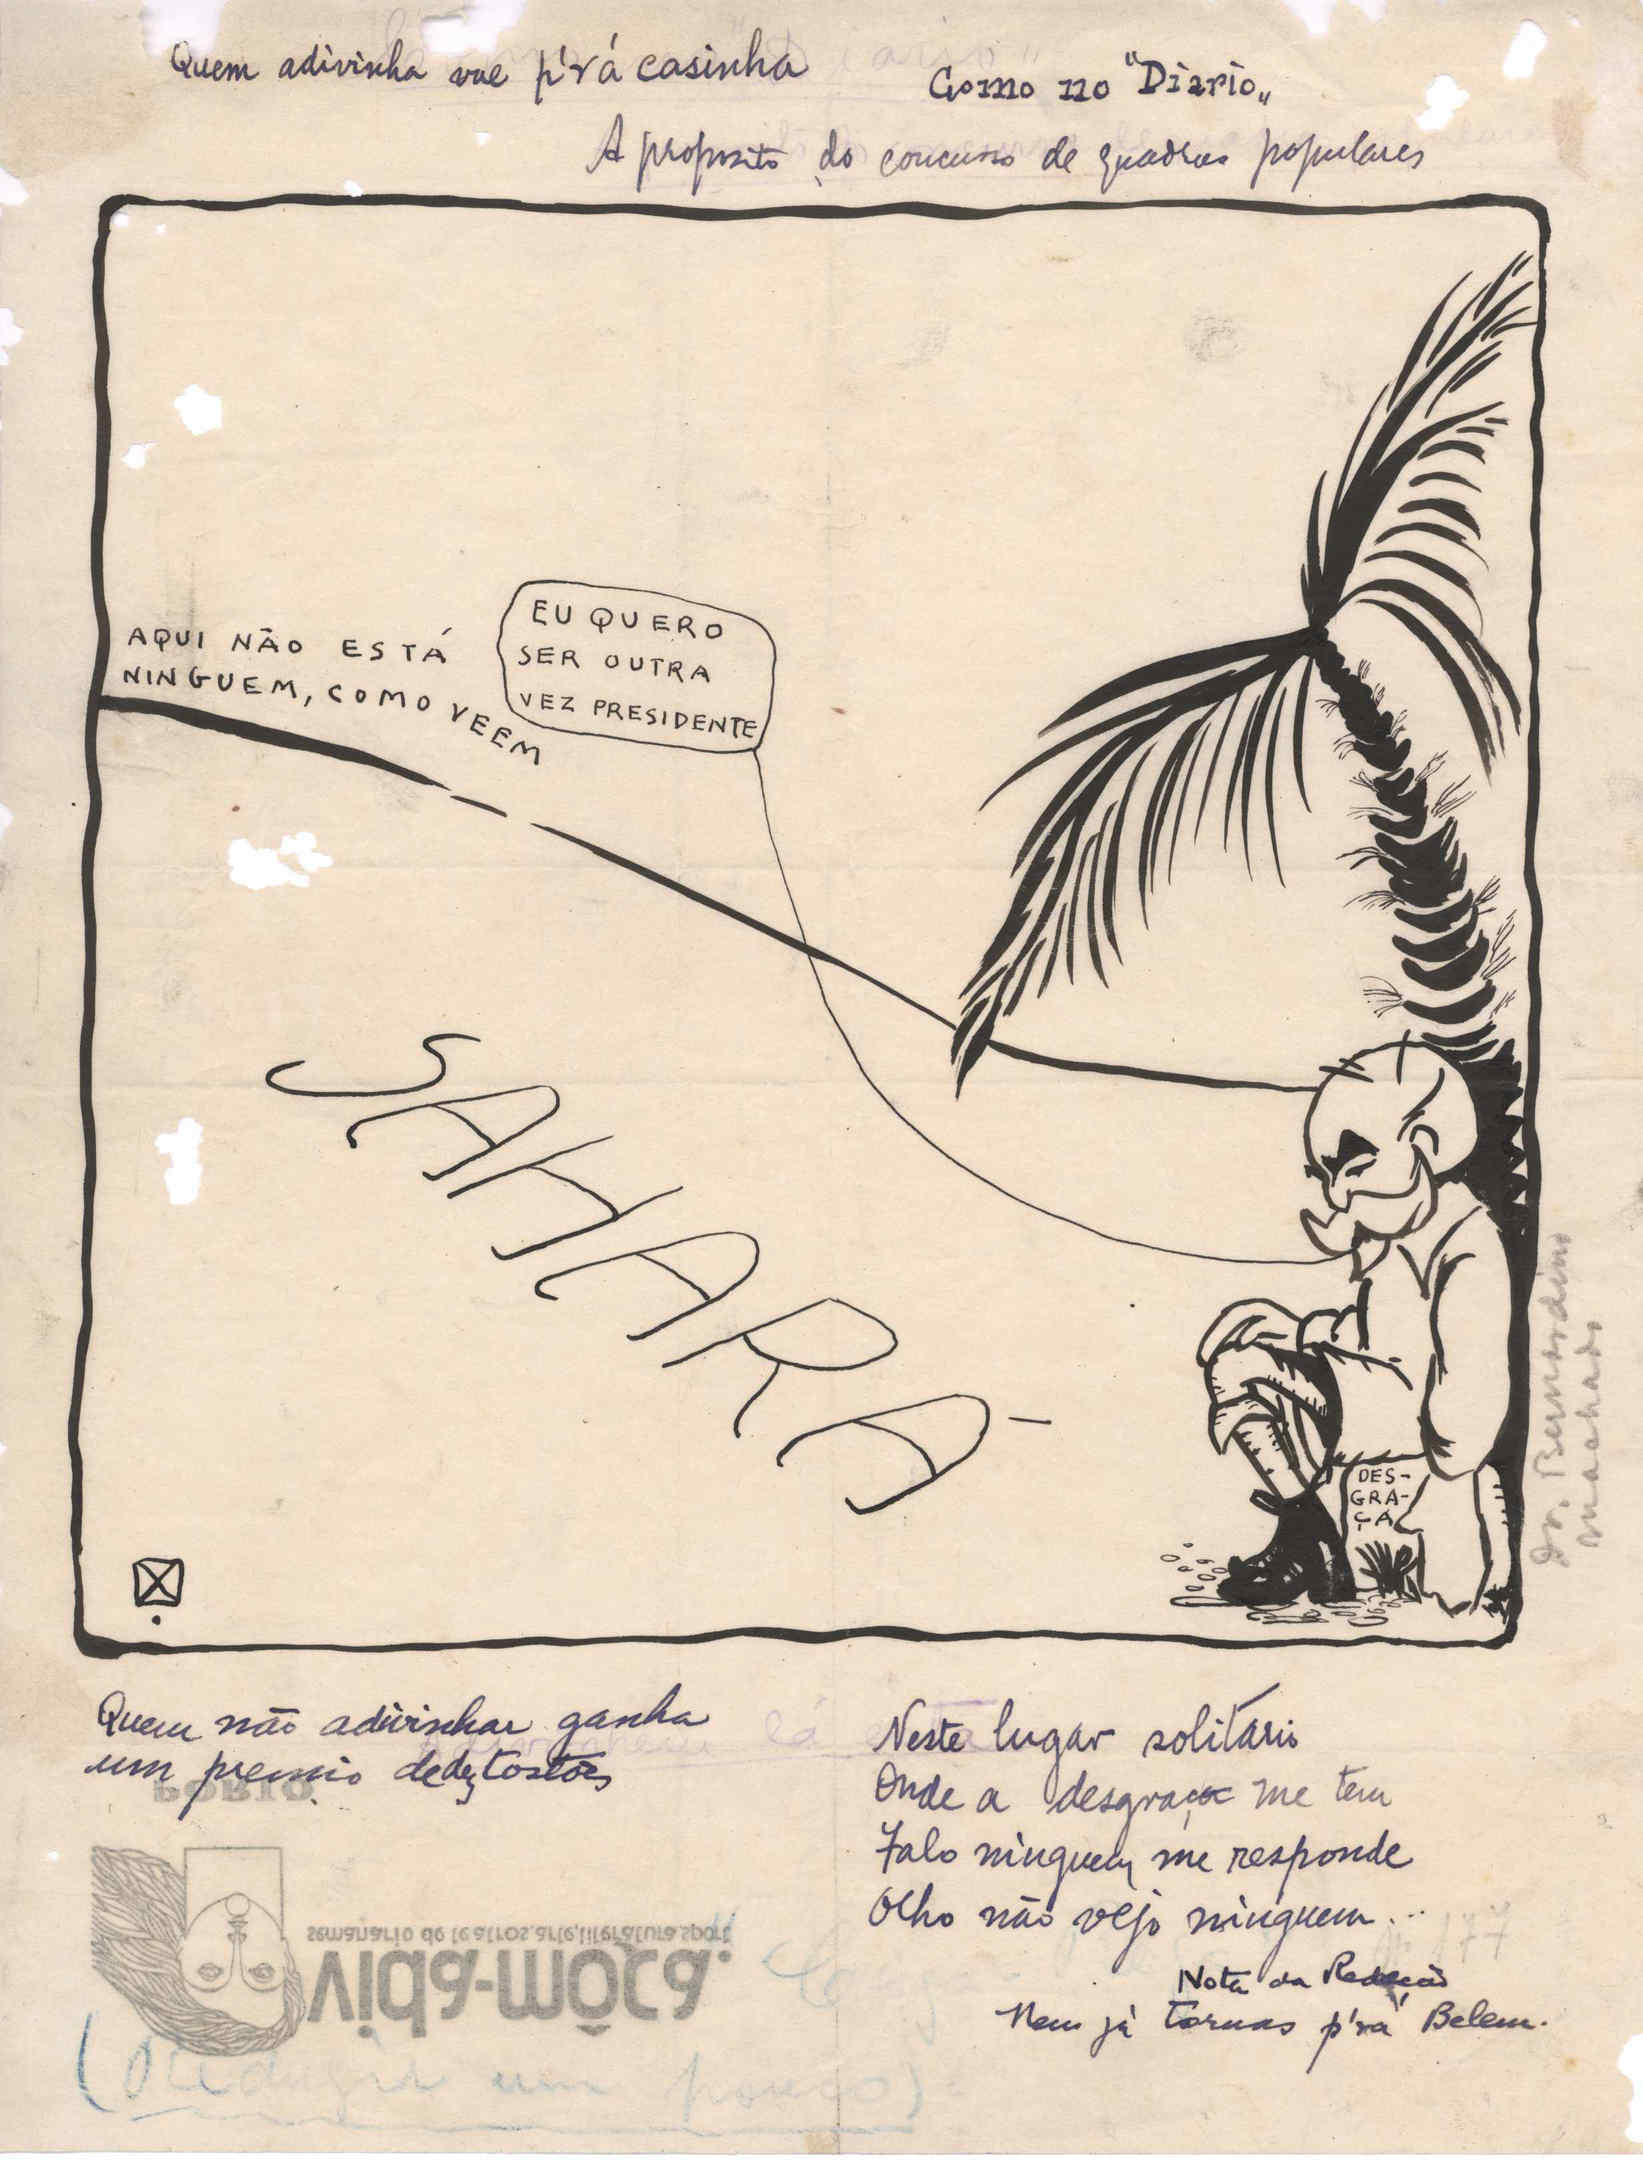 Quem adivinha vae p'rá casinha
Como no "Diario"
A proposito do concurso de quadras populares
AQUI NÃO ESTÁ
NINGUEM, COMO VEEM
EU QUERO
SER OUTRA
VEZ PRESIDENTE
SAHARÁ
DES-
GRA-
ÇA
Dr. Bernardino
machado
Quem não adivinhar ganha
um premio de dez tostões
Neste lugar solitário
Onde a desgraça me tem
Falo ninguem me responde
Olho não vejo ninguem...
Nota da Redação
Nem já tornas p'rá Belem.
PORTO
semanário de teatros, arte, literatura, sport
vida-môça.
(Reduzir um pouco)
177